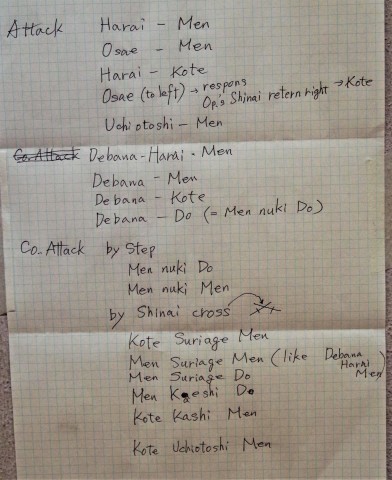 Attack Harai - Men
Osae - Men
Harai - Kote
Osae (to left) → respons → Kote
Op.'s Shinai retern right
Uchiotoshi - Men
Co. Attack Debana - Harai - Men
Debana - Men
Debana - Kote
Debana - Do (= Men nuki Do)
Co. Attack by Step
Men nuki Do
Men nuki Men
by Shinai cross
Kote Suriage Men
Men Suriage Men (like Debana Harai Men)
Men Suriage Do
Men Kaeshi Do
Kote Kashi Men
Kote Uchiotoshi Men